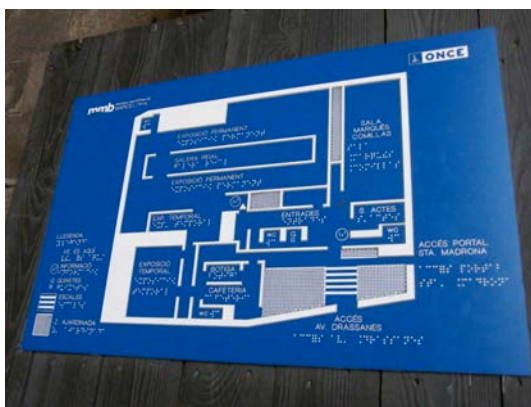 mmb
ONCE
EXPOSICIÓ PERMANENT
GALERA REIAL
EXPOSICIÓ PERMANENT
SALA
MARQUÈS
COMILLAS
EXP. TEMPORAL
ENTRADES
S. ACTES
WC
WC
ACCÉS PORTAL
STA. MADRONA
EXPOSICIÓ
TEMPORAL
BOTIGA
CAFETERIA
WC
ACCÉS
AV. DRASSANES
LLEGENDA
INFORMACIÓ
GUIXETES
ESCALES
Z. AJARDINADA